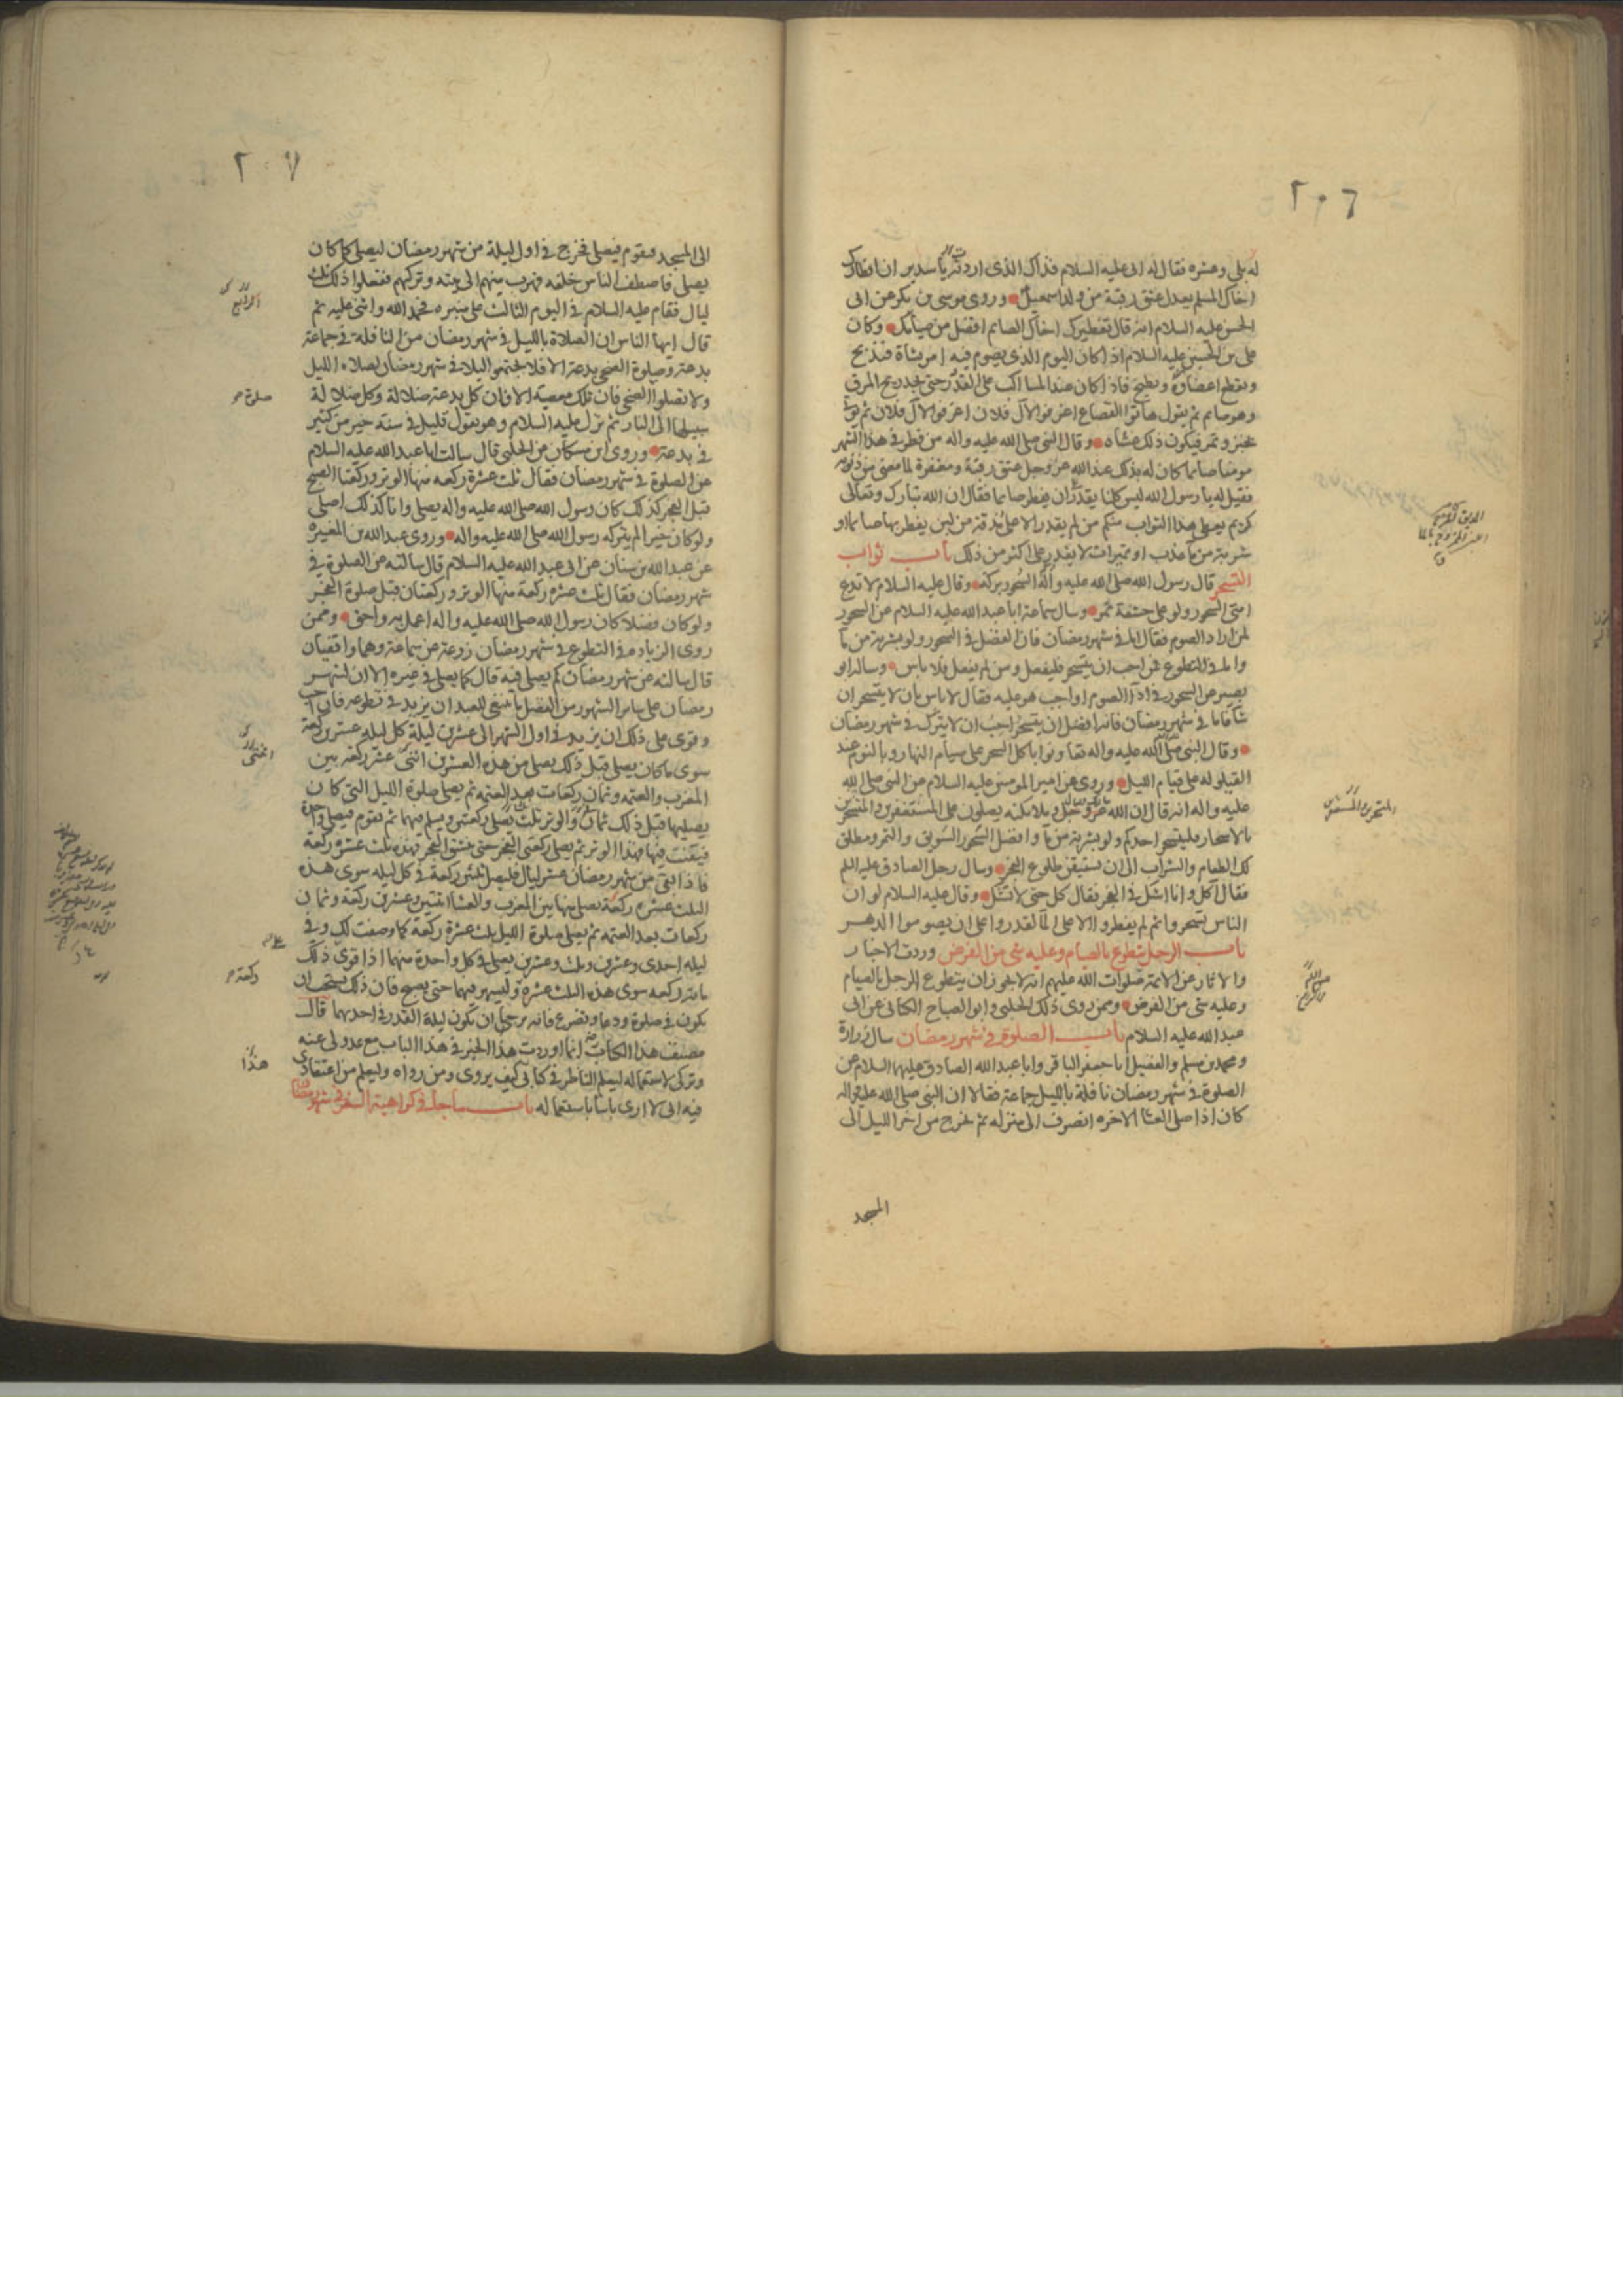 ٢٠٦
له بلى وعشره فقال له ابى عليه السلام فذاك الذى اردت يا سدير ان افطارك
اخاك المسلم يعدل عتق رقبة من ولد اسمعيل وروى موسى بن بكر عن ابى
الحسن عليه السلام انه قال تفطيرك اخاك الصايم افضل من صيامك وكان
على بن الحسين عليه السلام اذا كان اليوم الذى يصوم فيه امر بشاة فتذبح
وتقطع اعضاؤه وتطبخ فاذا كان عند المسا اكب على القدور حتى يجد ريح المرق
وهو صايم ثم يقول هاتوا القصاع اغرفوا لآل فلان اغرفوا لآل فلان ثم يوتى
بخبز وتمر فيكون ذلك عشاه وقال النبى صلى الله عليه واله من فطر فى هذا الشهر
مومنا صايما كان له بذلك عند الله عز وجل عتق رقبة ومغفرة لما مضى من ذنوبه
فقيل له يا رسول الله ليس كلنا يقدر ان يفطر صايما فقال ان الله تبارك وتعالى
كريم يعطى هذا الثواب منكم من لم يقدر الا على مذقة من لبن يفطر بها صايما او
شربة من ماء عذب او تميرات لا يقدر على اكثر من ذلك باب ثواب
التسحر قال رسول الله صلى الله عليه واله السحور بركة وقال عليه السلام لا تدع
امتى السحور ولو على حشفة تمر وسال سماعة ابا عبد الله عليه السلام عن السحور
لمن اراد الصوم فقال اما فى شهر رمضان فان الفضل فى السحور ولو بشربة من ما
واما فى التطوع فمن احب ان يتسحر فليفعل ومن لم يفعل فلا باس وساله ابو
بصير عن السحور لمن اراد الصوم اواجب هو عليه فقال لا باس بان لا يتسحر ان
شا فاما فى شهر رمضان فانه افضل ان يتسحر احب ان لا يترك فى شهر رمضان
وقال النبى صلى الله عليه واله تعاونوا باكل السحر على صيام النهار وبالنوم عند
القيلوله على قيام الليل وروى عن امير المومنين عليه السلام عن النبى صلى الله
عليه واله انه قال ان الله عز وجل وملائكته يصلون على المستغفرين والمتسحرين
بالاسحار فليتسحر احدكم ولو بشربة من ما وافضل السحور السويق والتمر ومطلق
لك الطعام والشراب الى ان تستيقن طلوع الفجر وسال رجل الصادق عليه السلم
فقال آكل وانا اشك فى الفجر فقال كل حتى لا تشك وقال عليه السلام لو ان
الناس تسحروا ثم لم يفطروا الا على الما لقدروا على ان يصوموا الدهر
باب الرجل يتطوع بالصيام وعليه شى من الفرض وردت الاخبار
والاثار عن الائمة صلوات الله عليهم انه لا يجوز ان يتطوع الرجل بالصيام
وعليه شى من الفرض وممن روى ذلك الحلبى وابو الصباح الكنانى عن ابى
عبد الله عليه السلام باب الصلوة فى شهر رمضان سال زرارة
ومحمد بن مسلم والفضيل ابا جعفر الباقر وابا عبد الله الصادق عليهما السلام عن
الصلوة فى شهر رمضان نافلة بالليل جماعة فقالا ان النبى صلى الله عليه واله
كان اذا صلى العشا الاخره انصرف الى منزله ثم يخرج من اخر الليل الى
المسجد
٢٠٧
الى المسجد فيقوم فيصلى فخرج فى اول ليلة من شهر رمضان ليصلى كما كان
يصلى فاصطف الناس خلفه فهرب منهم الى بيته وتركهم ففعلوا ذلك ثلث
ليال فقام عليه السلام فى اليوم الثالث على منبره فحمد الله واثنى عليه ثم
قال ايها الناس ان الصلاة بالليل فى شهر رمضان من النافلة فى جماعة
بدعة وصلوة الضحى بدعة الا فلا تجتمعوا ليلا فى شهر رمضان لصلاه الليل
ولا تصلوا الضحى فان تلك معصية الا فان كل بدعة ضلالة وكل ضلالة
سبيلها الى النار ثم نزل عليه السلام وهو يقول قليل فى سنة خير من كثير
فى بدعة وروى ابن مسكان عن الحلبى قال سالت ابا عبد الله عليه السلام
عن الصلوة فى شهر رمضان فقال ثلث عشرة ركعه منها الوتر وركعتا الصبح
قبل الفجر كذلك كان رسول الله صلى الله عليه واله يصلى وانا كذلك اصلى
ولو كان خيرا لم يتركه رسول الله صلى الله عليه واله وروى عبد الله بن المغيره
عن عبد الله بن سنان عن ابى عبد الله عليه السلام قال سالته عن الصلوة فى
شهر رمضان فقال ثلث عشره ركعة منها الوتر وركعتان قبل صلوة الفجر
ولو كان فضلا كان رسول الله صلى الله عليه واله اعمل به واحق وممن
روى الزياده فى التطوع فى شهر رمضان زرعة عن سماعة وهما واقفيان
قال سالته عن شهر رمضان كم يصلى فيه قال كما يصلى فى غيره الا ان لشهر
رمضان على ساير الشهور من الفضل ما ينبغى للعبد ان يزيد فى تطوعه فان احب
وقوى على ذلك ان يزيد فى اول الشهر الى عشرين ليلة كل ليله عشرين ركعة
سوى ما كان يصلى قبل ذلك يصلى من هذه العشرين اثنتى عشر ركعة بين
المغرب والعتمه وثمان ركعات بعد العتمه ثم يصلى صلوة الليل التى كان
يصليها قبل ذلك ثمان والوتر ثلث يصلى ركعتين ويسلم فيهما ثم يقوم فيصلى واحدة
فيقنت فيها فهذا الوتر ثم يصلى ركعتى الفجر حتى ينشق الفجر فهذه ثلث عشره ركعة
فاذا بقى من شهر رمضان عشر ليال فليصل ثلثين ركعة فى كل ليله سوى هذه
الثلث عشره ركعة يصلى منها بين المغرب والعشا اثنتين وعشرين ركعة وثمان
ركعات بعد العتمه ثم يصلى صلوة الليل ثلث عشرة ركعة كما وصفت لك وفى
ليله احدى وعشرين وثلث وعشرين يصلى فى كل واحدة منهما اذا قوى ذلك
مائة ركعه سوى هذه الثلث عشره وليسهر فيهما حتى يصبح فان ذلك يستحب ان
يكون فى صلوة ودعا وتضرع فانه يرجى ان تكون ليلة القدر فى احدهما قال
مصنف هذا الكتاب انما اوردت هذا الخبر فى هذا الباب مع عدولى عنه
وتركى لاستعماله ليعلم الناظر فى كتابى كيف يروى ومن رواه وليعلم من اعتقادى
فيه انى لا ارى باسا باستعماله باب ما جا فى كراهية السفر فى شهر رمضان
صلوة
ركعة
هذا